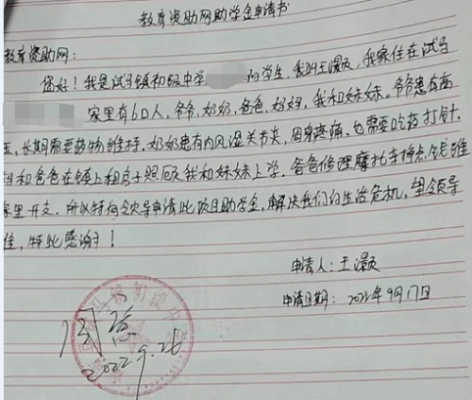 教育资助网助学金申请书
教育资助网：
您好！我是试马镇初级中学 的学生，我叫王灏，我家住在试马
家里有6口人，爷爷，奶奶，爸爸，妈妈，我和妹妹。爷爷患有高
压，长期需要药物维持，奶奶患有风湿关节炎，周身疼痛，也需要吃药打针，
妈和爸爸在镇上租房子照顾我和妹妹上学。爸爸修理摩托车挣点钱维
家里开支。所以特向领导申请此项目助学金，解决我们的生活危机，望领导
准，特此感谢！
申请人：王灏
申请日期：2022年9月17日
初级
同意
2022.9.26